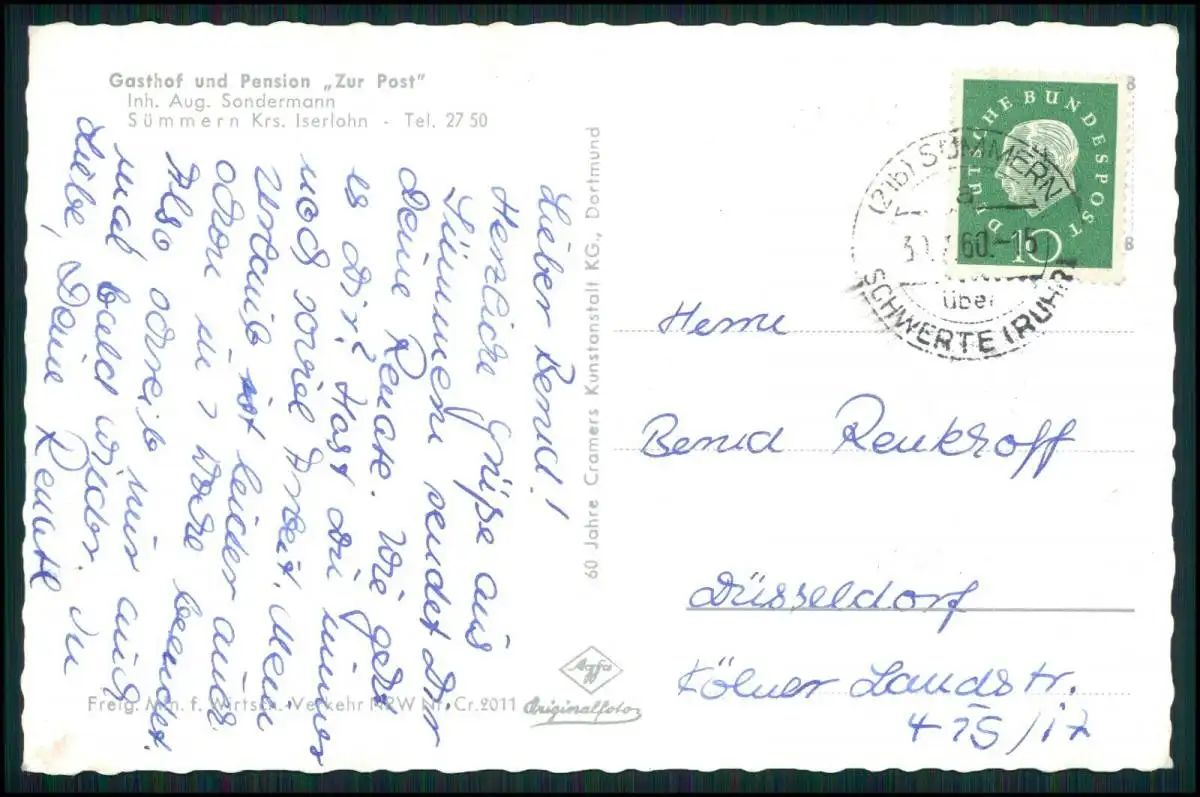 Gasthof und Pension „Zur Post"
Inh. Aug. Sondermann
Sümmern Krs. Iserlohn - Tel. 27 50
Lieber Bernd!
Herzliche Grüße aus
Sümmern sendet Dir
Deine Renate. Wie geht
es Dir? Hast Du immer
noch soviel Arbeit. Mein
Urlaub ist leider auch
schon in 1 Woche beendet.
Also schreib mir auch
mal bald wieder. In
Liebe, Deine Renate
60 Jahre Cramers Kunstanstalt KG., Dortmund
DEUTSCHE BUNDESPOST
10
8
8
(21b) SÜMMERN
a
60.-15
über
SCHWERTE (RUHR)
Herrn
Bernd Renkhoff
Düsseldorf
Kölner Landstr.
415/17
Agfa
Originalfoto
Freig. Min. f. Wirtsch. Verkehr NRW Nr. Cr. 2011